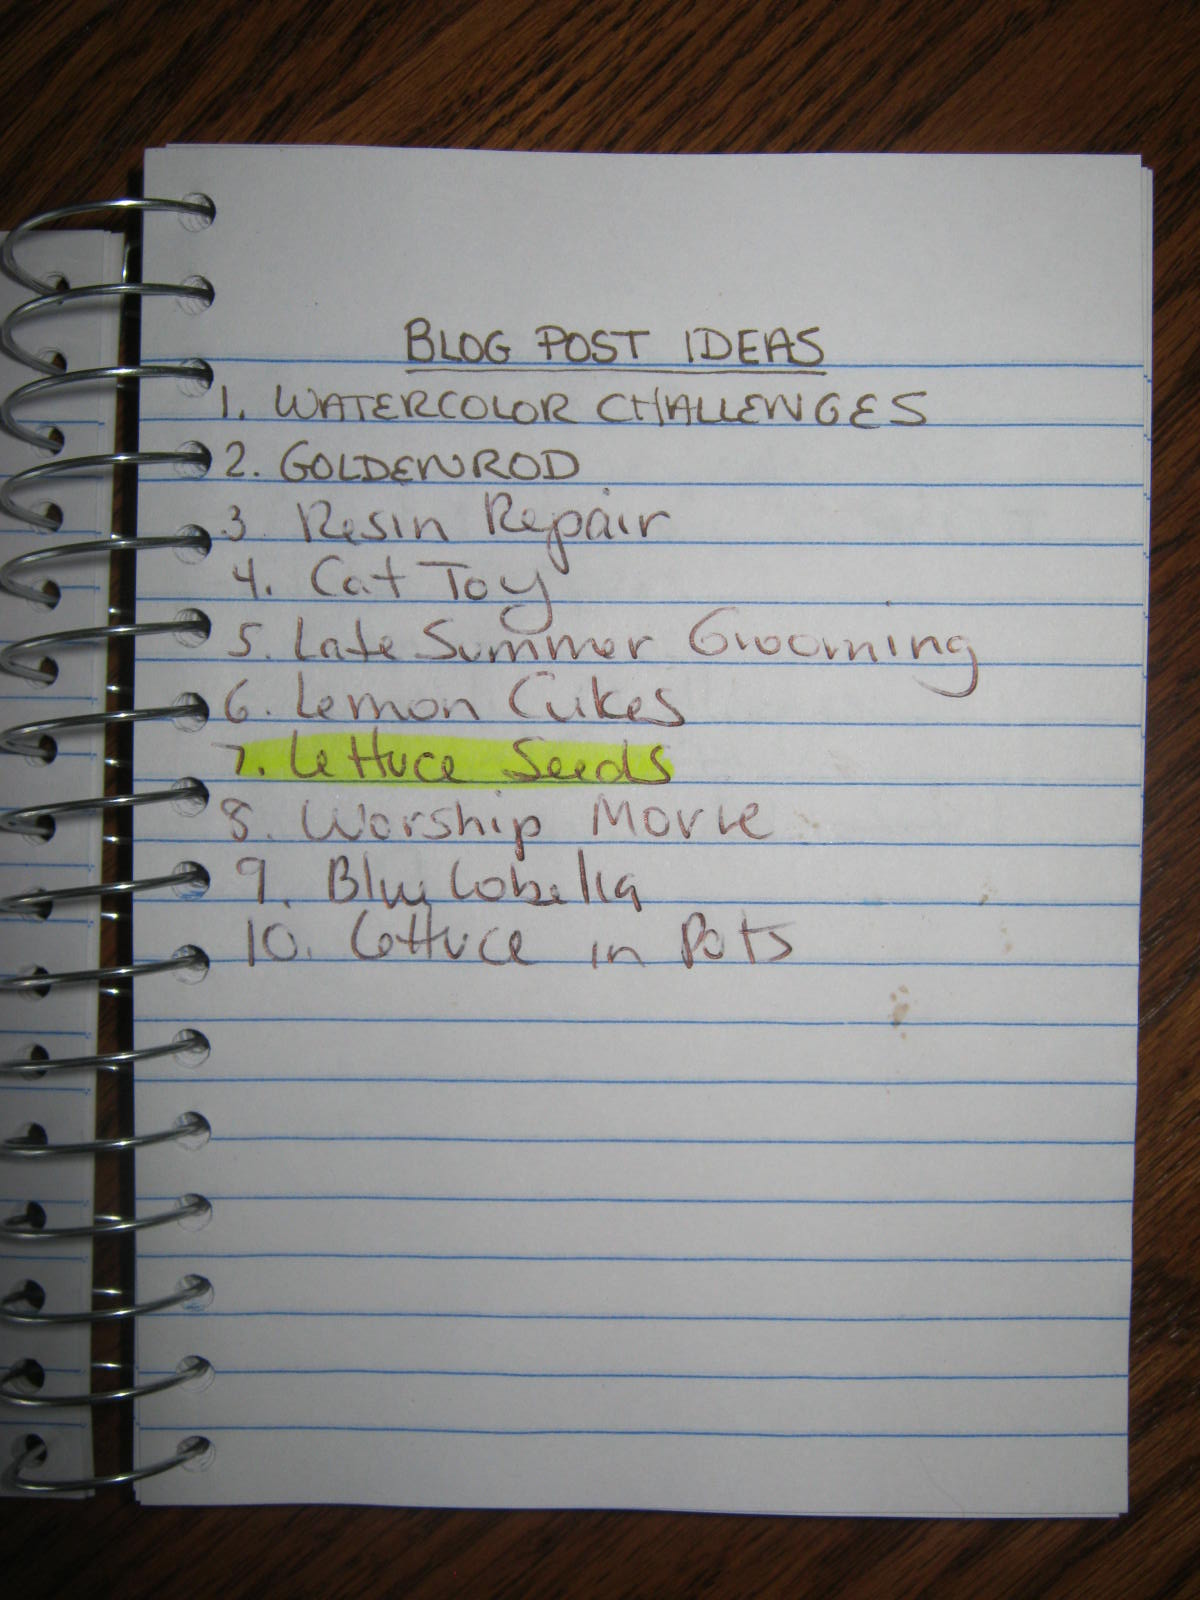 BLOG POST IDEAS
1. WATERCOLOR CHALLENGES
2. GOLDENROD
3. Resin Repair
4. Cat Toy
5. Late Summer Grooming
6. Lemon Cukes
7. Lettuce Seeds
8. Worship Movie
9. Blue Lobelia
10. Lettuce in Pots